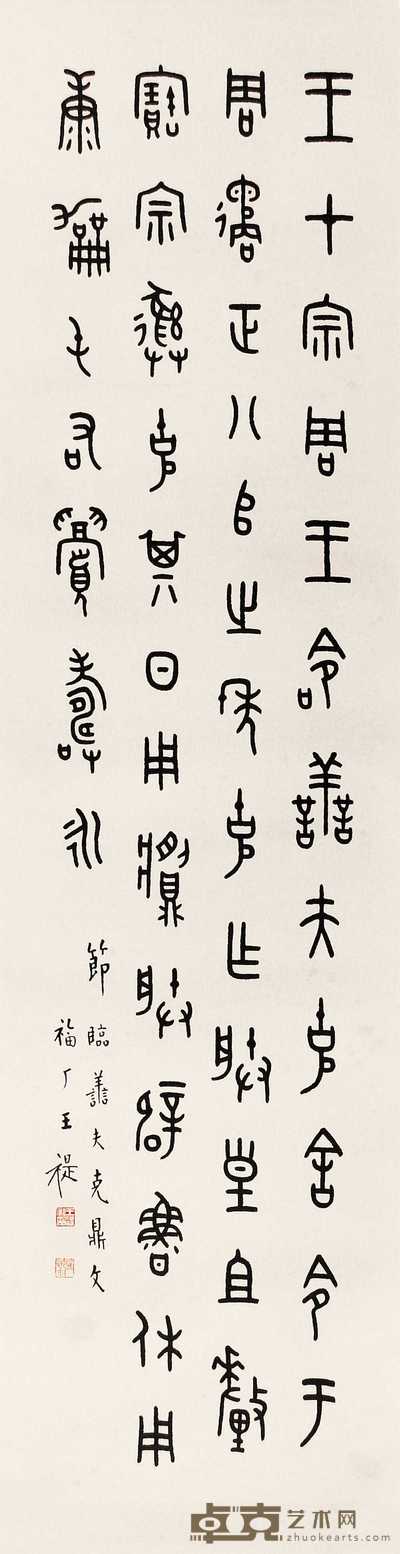 王才宗周王命善夫克舍令于
周遹正八𠂤之年克乍朕皇且釐
寶宗彝克其日用䵼朕辟魯休用
康勵屯右眉壽永
節臨善夫克鼎文
福厂王禔
卓克艺术网
zhuokearts.com